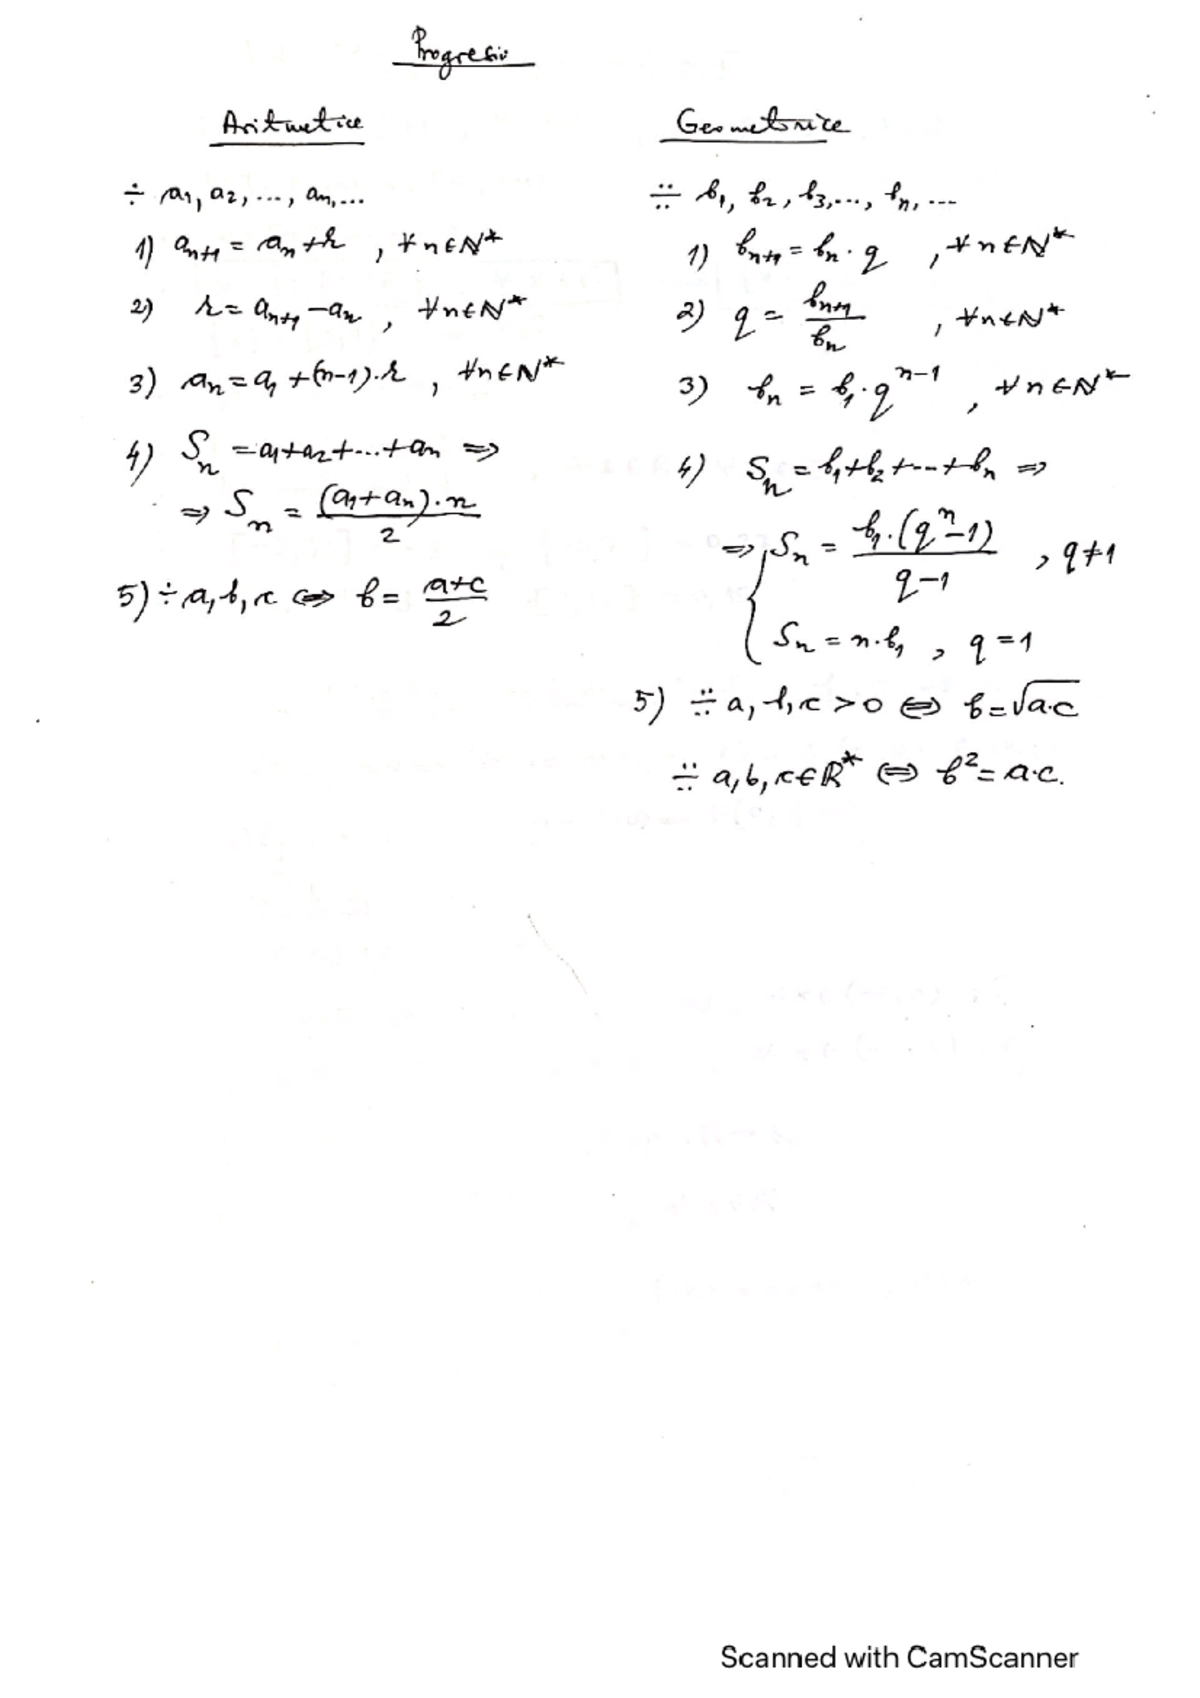 Progresii
Aritmetice
÷ a₁, a₂, ..., aₙ, ...
1) aₙ₊₁ = aₙ + r , ∀ n ∈ N*
2) r = aₙ₊₁ − aₙ , ∀ n ∈ N*
3) aₙ = a₁ + (n−1)·r , ∀ n ∈ N*
4) Sₙ = a₁ + a₂ + ... + aₙ ⇒
⇒ Sₙ = (a₁ + aₙ)·n / 2
5) ÷ a, b, c ⇔ b = (a+c) / 2
Geometrice
∺ b₁, b₂, b₃, ..., bₙ, ...
1) bₙ₊₁ = bₙ · q , ∀ n ∈ N*
2) q = bₙ₊₁ / bₙ , ∀ n ∈ N*
3) bₙ = b₁ · qⁿ⁻¹ , ∀ n ∈ N*
4) Sₙ = b₁ + b₂ + ... + bₙ ⇒
⇒ { Sₙ = b₁·(qⁿ−1) / (q−1) , q ≠ 1
Sₙ = n·b₁ , q = 1
5) ∺ a, b, c > 0 ⇔ b = √(a·c)
∺ a, b, c ∈ R* ⇔ b² = a·c.
Scanned with CamScanner